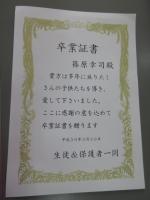 卒業証書
篠原幸司殿
貴方は多年に亘りたく
さんの子供たちを導き、
愛して下さいました。
ここに感謝の意を込めて
卒業証書を贈ります
生徒&保護者一同